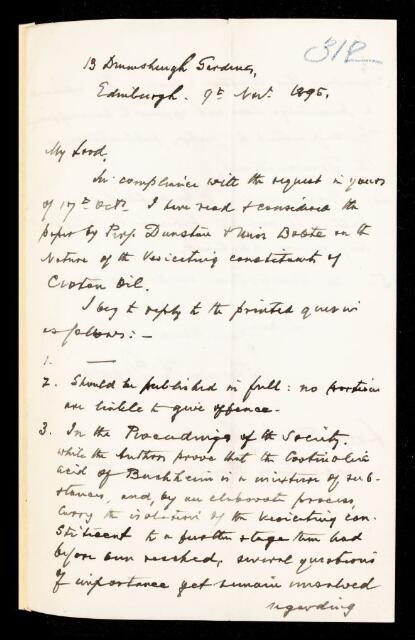 312
13 Drumsheugh Gardens,
Edinburgh. 9th Novr. 1895.
My Lord,
In compliance with the request in yours
of 17th Octr. I have read & considered the
paper by Prof. Dunstan & Miss Boole on the
Nature of the Vesicating constituent of
Croton Oil.
I beg to reply to the printed queries
as follows: —
1. —
2. Should be published in full: no portions
are liable to give offence.
3. In the Proceedings of the Society.
While the Authors prove that the Crotonoleic
acid of Buchheim is a mixture of sub-
stances, and, by an elaborate process,
carry the isolation of the vesicating con-
stituent to a further stage than had
before been reached, several questions
of importance yet remain unsolved
regarding